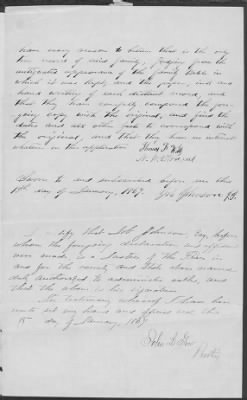 have every reason to believe that this is the only
true record of said family, judging from the
antiquated appearance of the family bible in
which it was kept and the paper, ink and
hand writing of each distinct record, and
that they have carefully compared the fore
going copy with the original, and find the
dates and all other facts to correspond with
the original, and that they have no interest
whatever in this application
Sworn to and subscribed before me this
15th day of January, 1867.
I certify that Job Johnson, Esq before
whom the foregoing declaration and affidavit
were made is a Justice of the Peace in
and for the county and State above named
duly authorized to administer oaths, and
that the above is his signature.
In testimony whereof I have here
unto set my hand and
15 day of January 1867
John